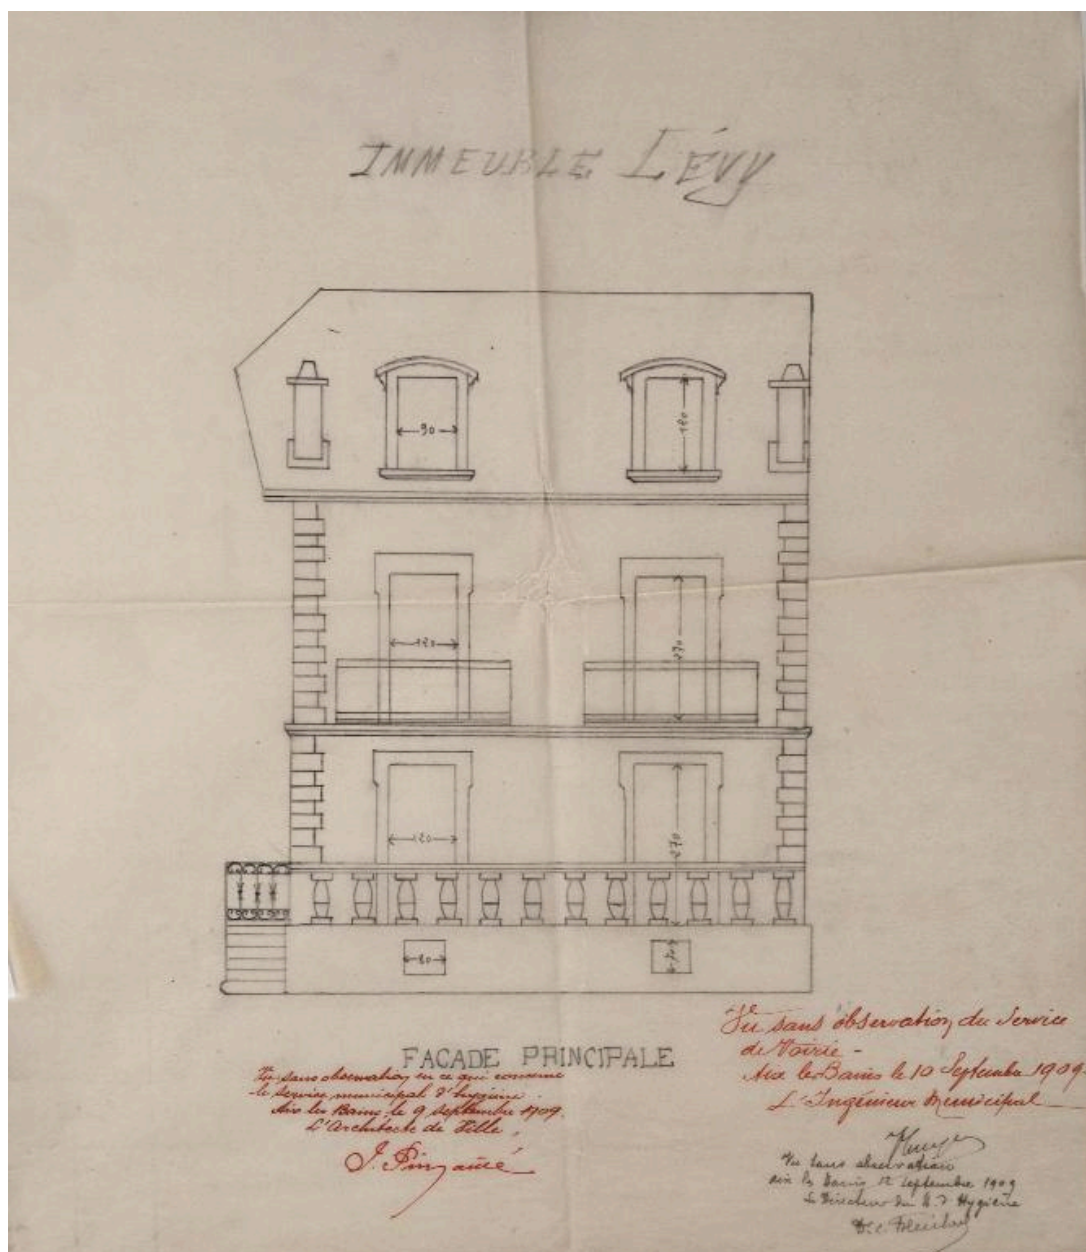 IMMEUBLE LÉVY
90
180
120
270
120
270
80
FACADE PRINCIPALE
Vu sans observation en ce qui concerne
le service municipal d'hygiène.
Aix les Bains le 9 septembre 1909.
L'Architecte de Ville,
J. Pin
Vu sans observation du Service
de Voirie -
Aix les Bains le 10 Septembre 1909.
L'Ingénieur Municipal
Vu sans observation
Aix les Bains 12 septembre 1909
Le Directeur du B. d'Hygiène